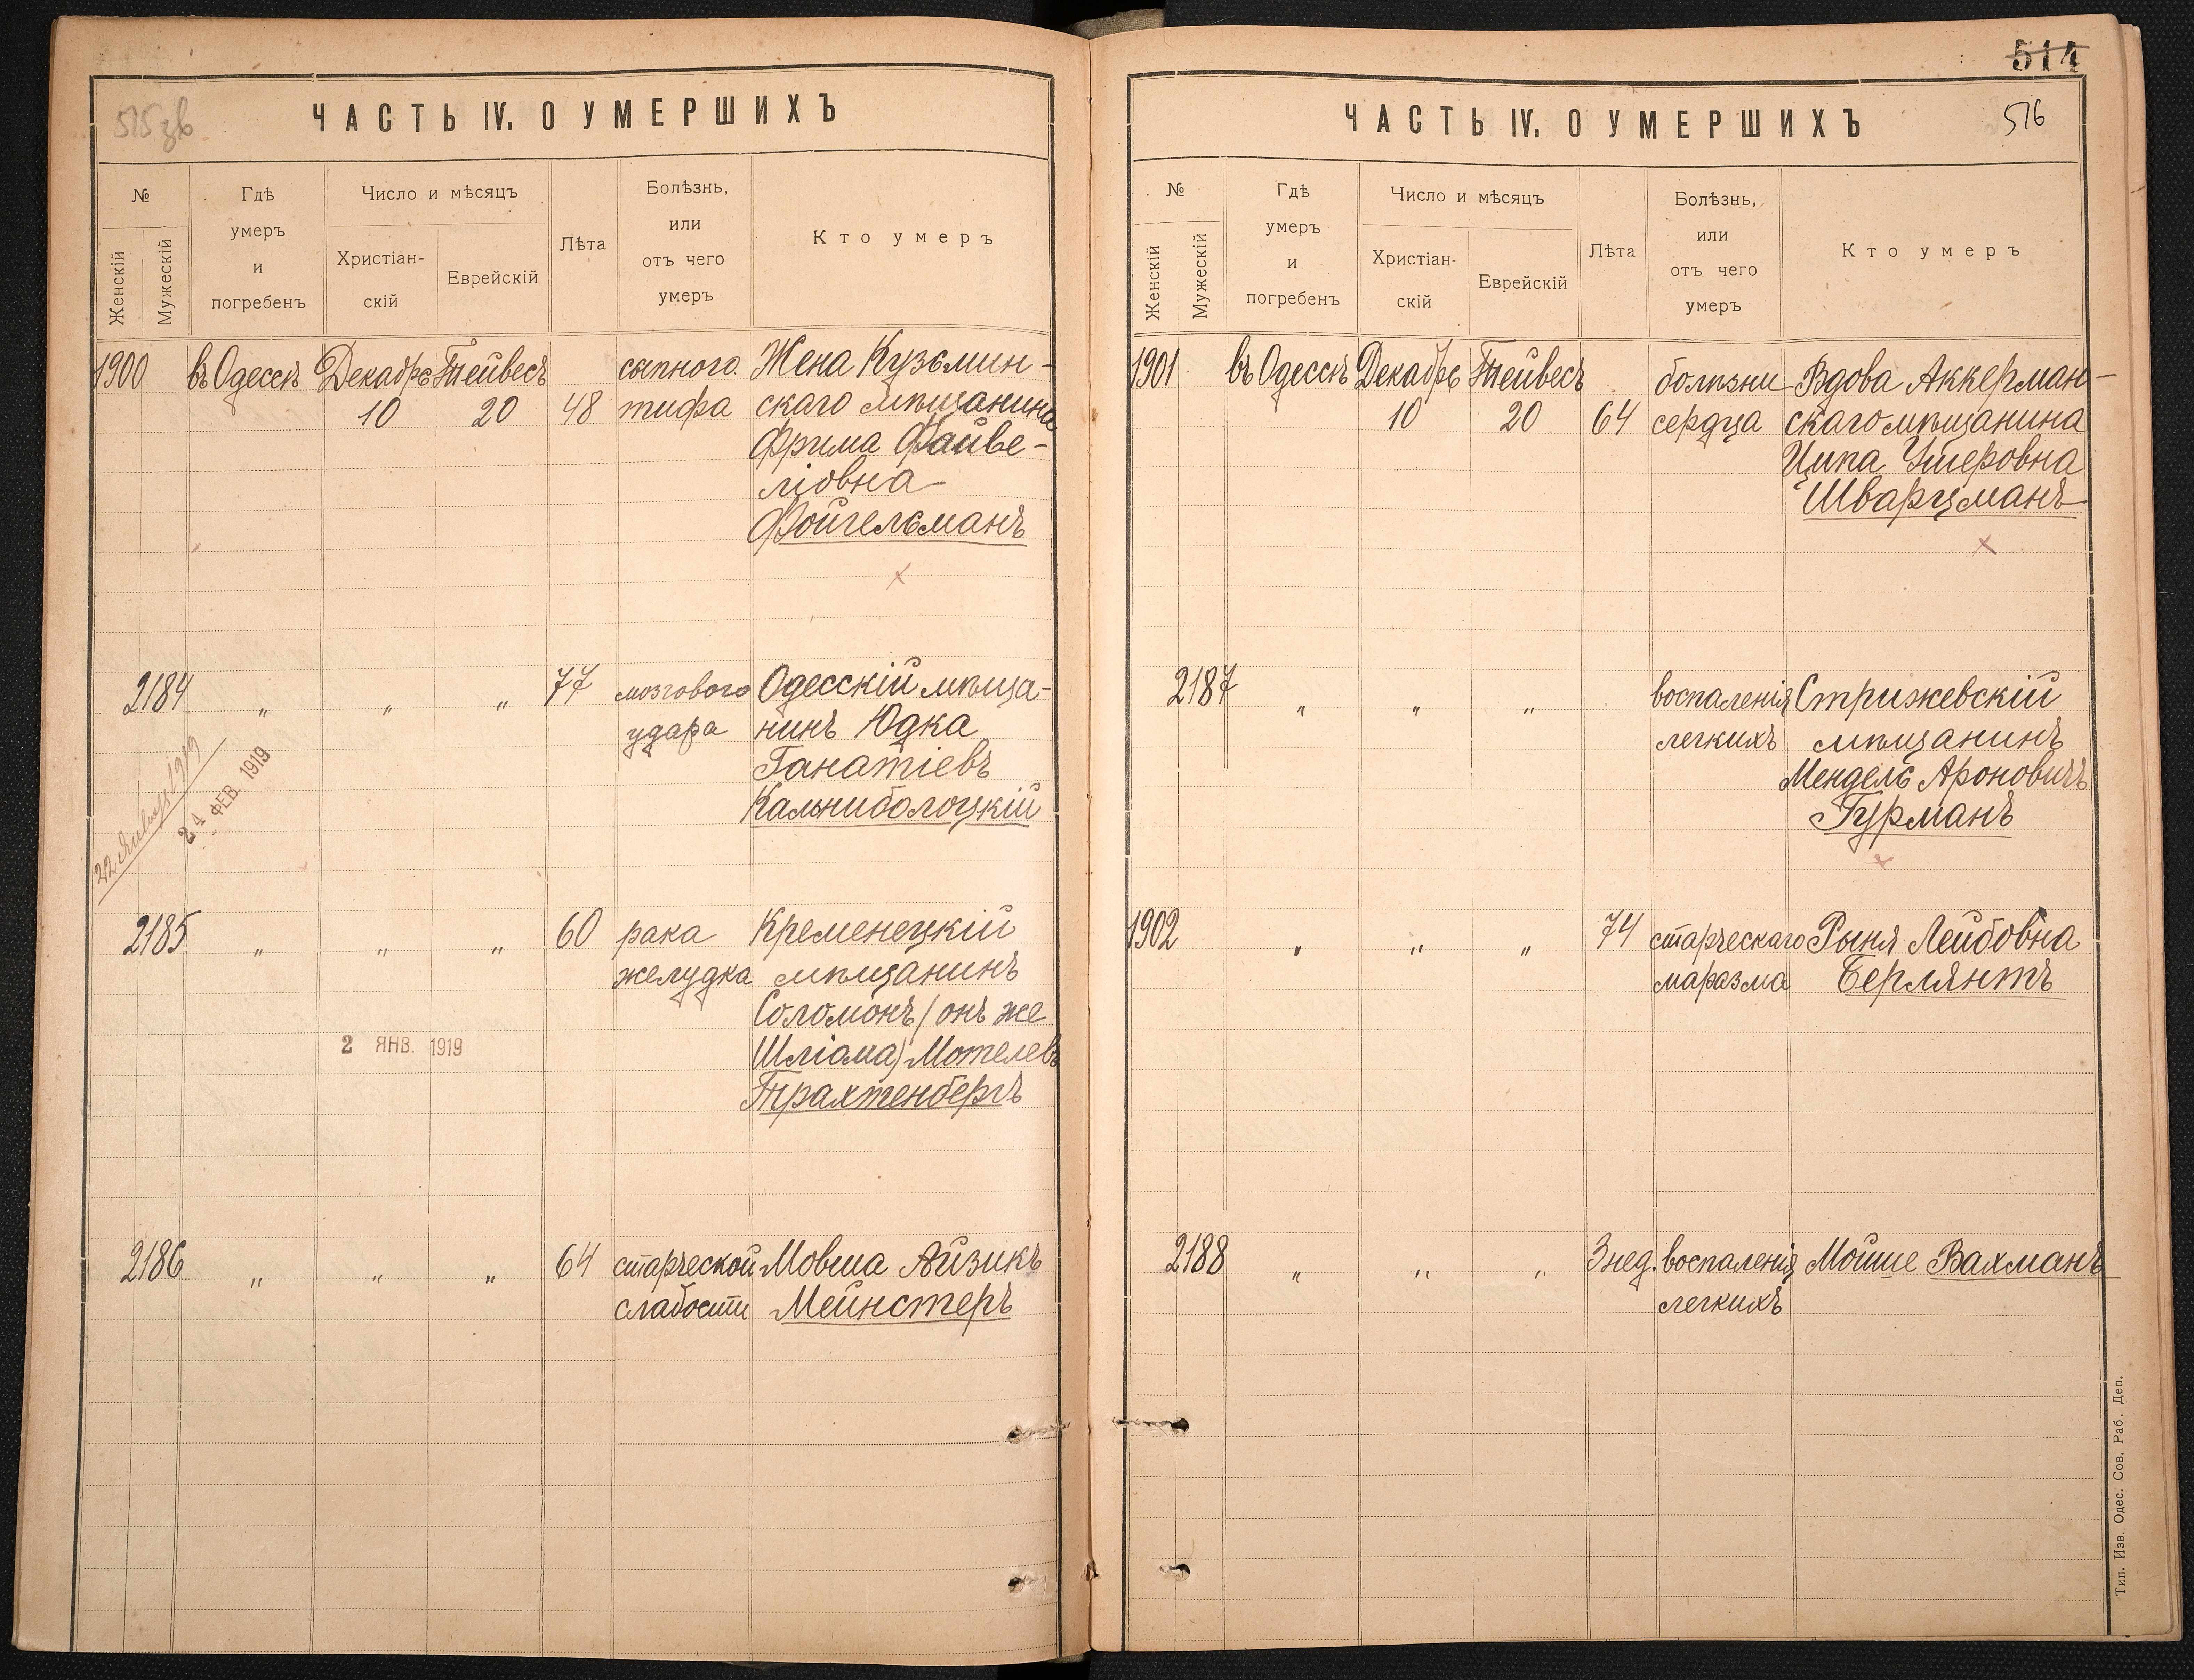 515 зв
ЧАСТЬ IV. О УМЕРШИХЪ
№
Женскій
Мужескій
Гдѣ
умеръ
и
погребенъ
Число и мѣсяцъ
Христіан-
скій
Еврейскій
Лѣта
Болѣзнь,
или
отъ чего
умеръ
Кто умеръ
1900 въ Одессѣ Декабрь Тейвесъ сыпного Жена Кузьмин-
10 20 48 тифа скаго мѣщанина
Фрима Файве-
ліовна
Фойгельманъ
2184 „ „ „ 77 мозгового Одесскій мѣща-
удара нинъ Юдка
Ганатіевъ
Кальниболоцкій
22 1919
24 ФЕВ. 1919
2185 „ „ „ 60 рака Кременецкій
желудка мѣщанинъ
Соломонъ (онъ же
Шліома) Мотелевъ
Трахтенбергъ
2 ЯНВ. 1919
2186 „ „ „ 64 старческой Мовша Айзикъ
слабости Мейнстеръ
514
ЧАСТЬ IV. О УМЕРШИХЪ
516
№
Женскій
Мужескій
Гдѣ
умеръ
и
погребенъ
Число и мѣсяцъ
Христіан-
скій
Еврейскій
Лѣта
Болѣзнь,
или
отъ чего
умеръ
Кто умеръ
1901 въ Одессѣ Декабрь Тейвесъ болѣзни Вдова Аккерман-
10 20 64 сердца скаго мѣщанина
Ципа Ушеровна
Шварцманъ
2187 „ „ „ воспаленія Стрижевскій
легкихъ мѣщанинъ
Мендель Ароновичъ
Гурманъ
1902 „ „ „ 74 старческаго Рыня Лейбовна
маразма Берлянтъ
2188 „ „ „ 3 нед. воспаленія Мойше Вахманъ
легкихъ
Тип. Изв. Одес. Сов. Раб. Деп.